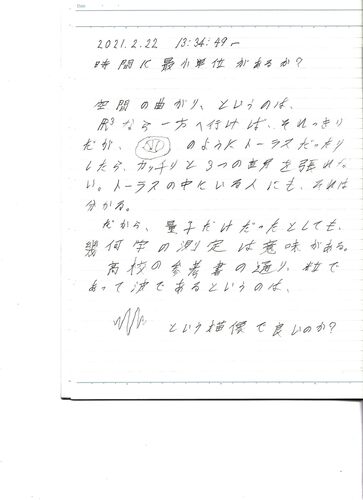 2021.2.22 13:34:49~
時間に最小単位があるか?
空間の曲がり、というのは、
形なら一方へ行けば、それっきり
だが、 のようにトーラスだったり
したら、カッチリと3つの世界を張れな
い。トーラスの中にいる人にも、それは
分かる。
だから、量子だけだったとしても、
幾何学の測定は意味がある。
高校の参考書の通り、粒で
あって波であるというのは、
という描像で良いのか?